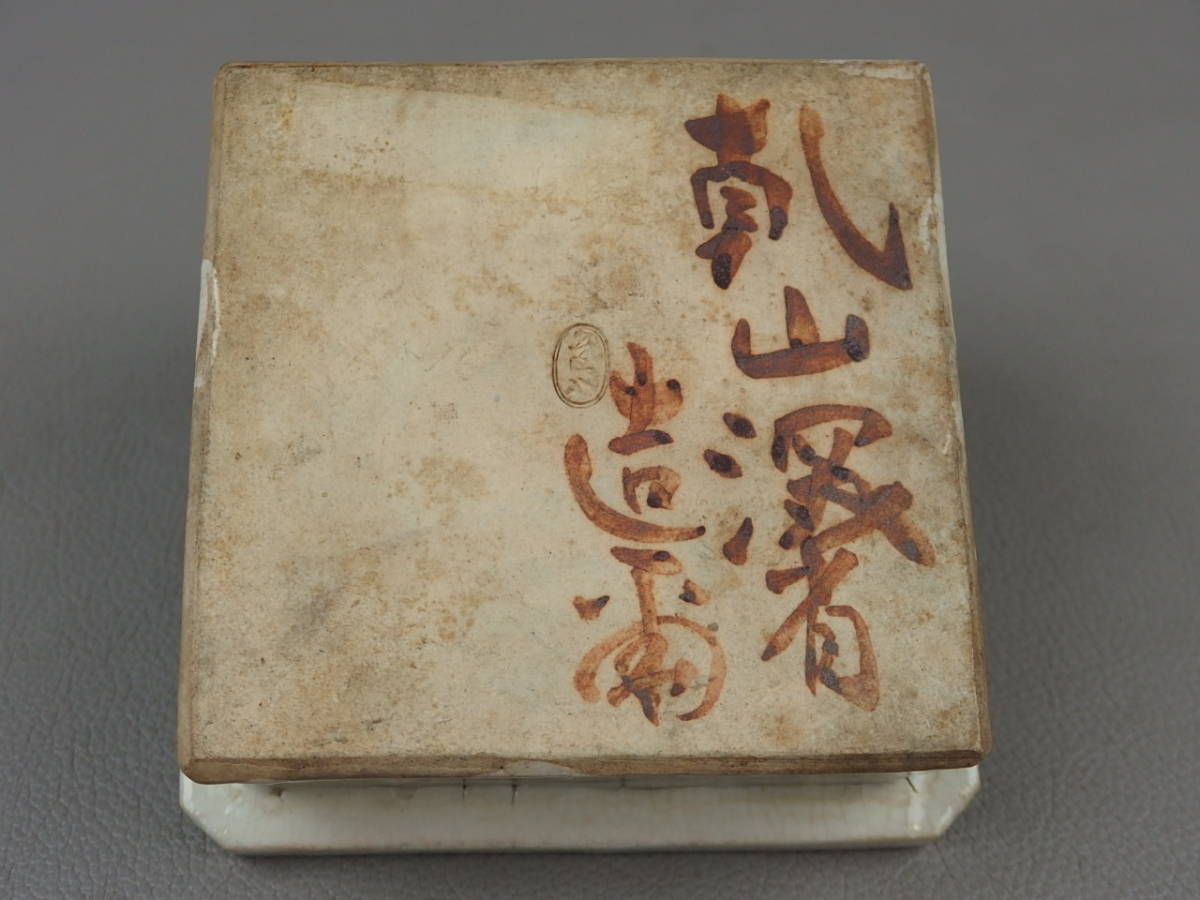 乾山深省
造爾